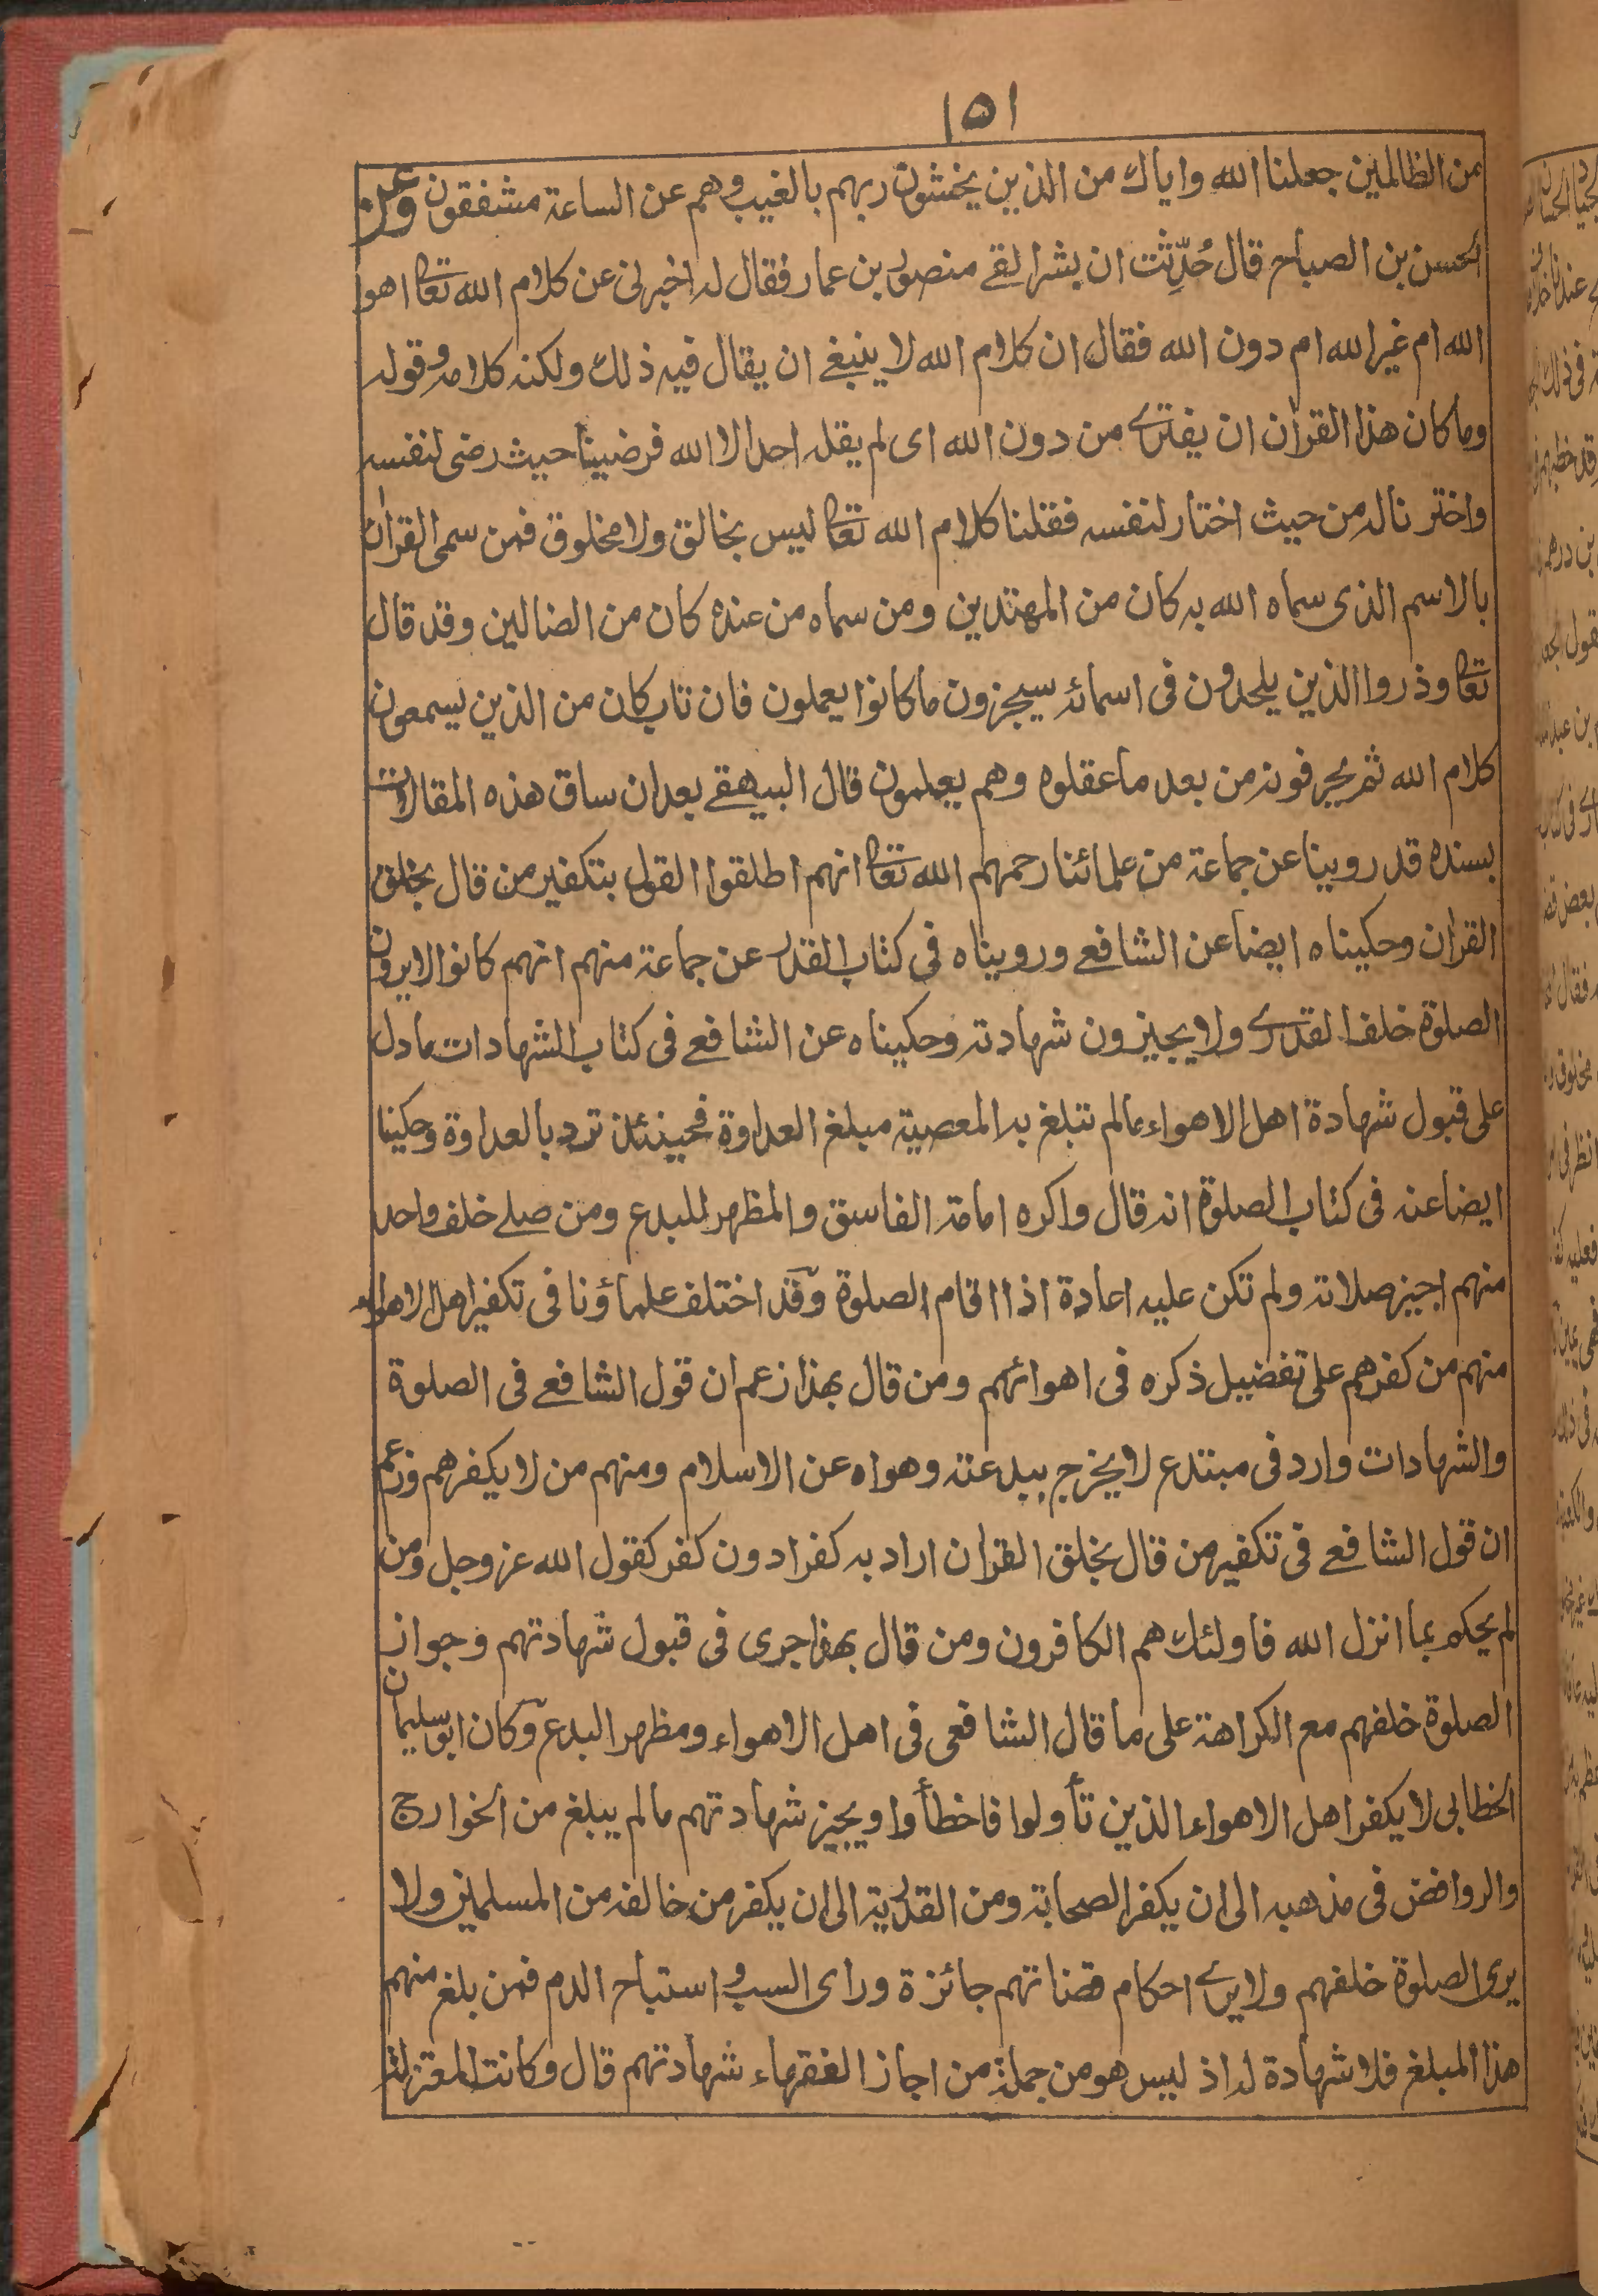 ١٥١
من الظالمين جعلنا الله واياك من الذين يخشون ربهم بالغيب وهم عن الساعة مشفقون وعن
الحسن بن الصباح قال حُدِّثت ان بشرا لقے منصور بن عمار فقال له اخبرنى عن كلام الله تعالى اهو
الله ام غير الله ام دون الله فقال ان كلام الله لا ينبغے ان يقال فيه ذلك ولكنه كلامه وقوله
وما كان هذا القران ان يفترے من دون الله اى لم يقله احد الا الله فرضينا حيث رضى لنفسه
واخترنا له من حيث اختار لنفسه فقلنا كلام الله تعالى ليس بخالق ولا مخلوق فمن سمى القران
بالاسم الذى سماه الله به كان من المهتدين ومن سماه من عنده كان من الضالين وقد قال
تعالى وذروا الذين يلحدون فى اسمائه سيجزون ما كانوا يعملون فان تاب كان من الذين يسمعون
كلام الله ثم يحرفونه من بعد ما عقلوه وهم يعلمون قال البيهقے بعد ان ساق هذه المقالات
بسنده قد روينا عن جماعة من علمائنا رحمهم الله تعالى انهم اطلقوا القول بتكفير من قال بخلق
القران وحكيناه ايضا عن الشافعے ورويناه فى كتاب القدر عن جماعة منهم انهم كانوا لا يرون
الصلوة خلف القدرے ولا يجيزون شهادته وحكيناه عن الشافعے فى كتاب الشهادات ما دل
على قبول شهادة اهل الاهواء ما لم تبلغ به المعصية مبلغ العداوة فحينئذ ترد بالعداوة وحكينا
ايضا عنه فى كتاب الصلوة انه قال واكره امامة الفاسق والمظهر للبدع ومن صلے خلف واحد
منهم اجيز صلاته ولم تكن عليه اعادة اذا اقام الصلوة وقد اختلف علماؤنا فى تكفير اهل الاهواء
منهم من كفرهم على تفضيل ذكره فى اهوائهم ومن قال بهذا زعم ان قول الشافعے فى الصلوة
والشهادات وارد فى مبتدع لا يخرج ببدعته وهواه عن الاسلام ومنهم من لا يكفرهم وزعم
ان قول الشافعے فى تكفير من قال بخلق القران اراد به كفرا دون كفر كقول الله عز وجل ومن
لم يحكم بما انزل الله فاولئك هم الكافرون ومن قال بهذا جرى فى قبول شهادتهم وجواز
الصلوة خلفهم مع الكراهة على ما قال الشافعى فى اهل الاهواء ومظهر البدع وكان ابو سليمان
الخطابى لا يكفر اهل الاهواء الذين تأولوا فاخطأوا ويجيز شهادتهم ما لم يبلغ من الخوارج
والروافض فى مذهبه الى ان يكفر الصحابة ومن القدرية الى ان يكفر من خالفه من المسلمين ولا
يرى الصلوة خلفهم ولا يرے احكام قضاتهم جائزة وراى السب و استباح الدم فمن بلغ منهم
هذا المبلغ فلا شهادة له اذ ليس هو من جملة من اجاز الفقهاء شهادتهم قال وكانت المعتزلة